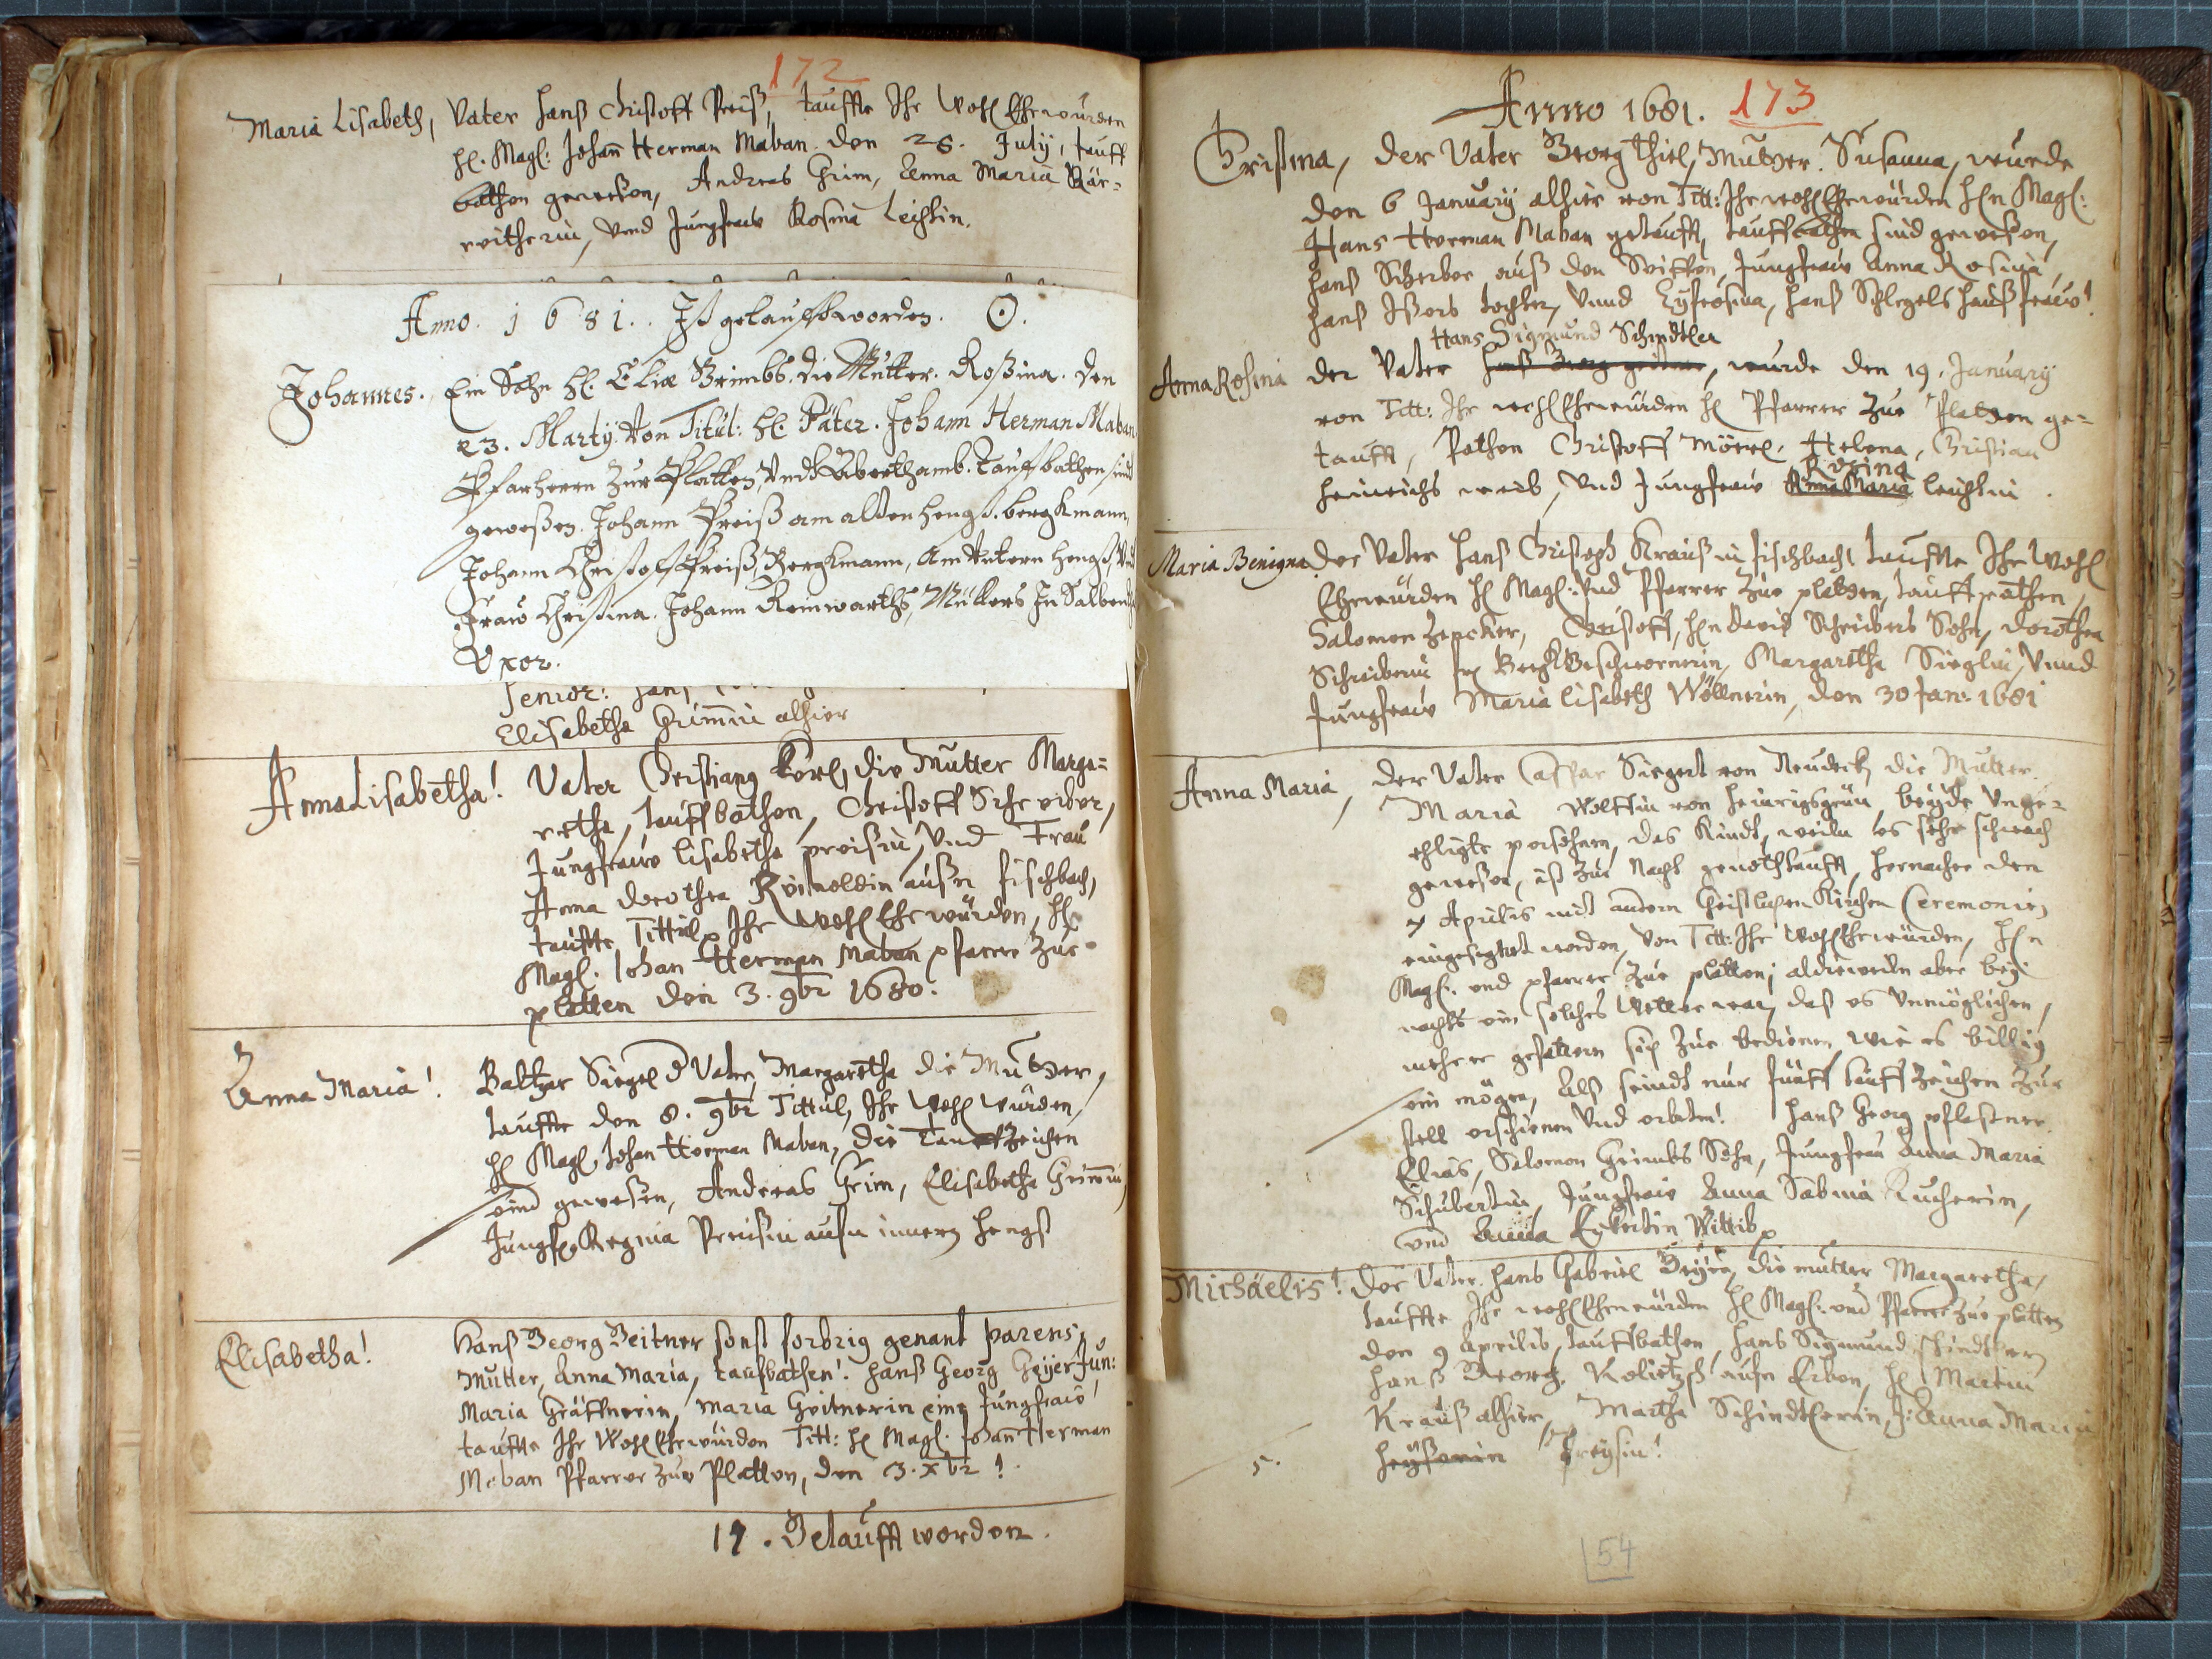 172
Maria Lisabeth, Vater Hanß Christoff Preiß, tauffte Ihr Wohl Ehrwürden
H. Magl: Johan̄ Herman Maban. den 28. July, tauff
bathen geweßen, Andreas Grim, Anna Maria
und Jungfraw Rosina Leichtin.
Anno. 1681. Ist getaufft worden. ʘ.
Johannes. Ein Sohn H. Eliæ Grimbs. die Mutter. Roßina. den
23. Marty. Von Titul: H. Páter. Johann Herman Maban
Pfarherrn zur Platten, Undt Aberthamb. Tauffbathen sindt
geweßen. Johann Preiß am alden hengst. bergkmann,
Johann Christoff Preiß, Bergkmann, Am Untern hengst, Und
Fraw Christina. Johann Reinwarths, Müllers In
Uxor.
Senior: Hanß
Elisabetha Grim̄in alhier
Anna Lisabetha! Vater Christianq Körl, die Mutter Marga=
retha, tauffbathen, Christoff Schreiber,
Jungfraw Lisabetha Preißin, Und Frau
Anna Dorothea Reinoldin außn fischbach,
tauffte Tittul Ihr Wohl Ehrwürden, H.
Magl. Johan Herman Maban pfarrer zur
platten den 3. 9br 1680.
Anna Maria! Baltzer Siegel d Vater, Margaretha die Mutter,
tauffte den 8. 9br Tittul, Ihr Wohl würden,
H Magl, Johan Herman Maban, die Tauffzeichen
sind geweßen, Andreas Grim, Elisabetha Grim̄in,
Jungf. Regina Preißin aufn innern hengst
Elisabetha! Hanß Georg Geitner sonst forbrig genant parens,
Mutter, Anna Maria, taufbathen! Hanß Georg Geyer Jun:
Maria Gräffnerin, Maria Geitnerin eine Jungfraw!
tauffte Ihr Wohl Ehrwürden Titt: H Magl. Johan̄ Herman
Maban Pfarrer zur Platten, den 3. Xbr!
17. Getaufft worden.
Anno 1681. 173
Christina, Der Vater Georg Thiel, Mutter. Susanna, wurde
den 6 January alhier von Titt: Ihr wohl Ehrwürden H n Magl:
Hans Herman Maban getaufft, tauffbathen sind geweßen,
Hanß Schreiber auß den, Jungfraw Anna Rosina,
Hanß tochter, Unnd, Hanß Schlegels haußfraw!
Hans Sigmund Schindtler
Anna Rosina Der Vater Hanß Georg Geitner, wurde den 19. January
von Titt: Ihr wohl Ehrwürden H Pfarrer zur Platten ge=
taufft, Pathen Christoff Mörrl, Helena, Christian
Rosina
Heinrichs weib, Und Jungfraw Anna Maria Leichtin.
Maria Benigna. Der Vater Hanß Christoph Krauß in fischbach, tauffte Ihr Wohl
Ehrwürden H Magl: Und Pfarrer zur platten, tauffpathen,
Salomon Zencker, Christoff, H n David Schreibers Sohn, Dorothea
Schreiberin Bergk Geschwornerin, Margaretha Sieglin, Unnd
Jungfraw Maria Lisabeth Wöllnerin, den 30 Jan. 1681
Anna Maria, Der Vater Caspar Siegert von Neudeck, die Mutter.
Maria Wolffin von Heinrigsgrün, beyde Unge=
ehligte persohnen, das Kindt, weiln es sehr schwach
geweßen, ist zur Nacht genothtaufft, hernacher den
7 Aprilis mit andern Geistlichen Kirchen Ceremonien
eingesegnet worden, Von Titt: Ihr Wohl Ehrwürden, H n
Magl: und pfarrer zur platten; aldieweiln aber bey
nachts ein solches Wetter war, daß es Unmöglichen,
mehrer gefattern sich zur bedienen, wie es billig
sein mögen, Alß seindt nur fünff tauffzeichen zur
stell erschienen Und erbeten! Hanß Georg Pflestner.
Elias, Salomon Grimbs Sohn, Jungfrau Anna Maria
Schubertin, Jungfraw Anna Sabina Kucherin,
und Anna Eckertin Wittib
Michäelis! Der Vater. Hans Gabriel Geyer, die mutter Margaretha,
tauffte Ihr wohl Ehrwürden H Magl: und Pfarrer zur platten
den 9 Aprilis, tauffbathen, Hans Sigmund Schindtler,
Hanß Georg aufn Erben, H Martin
Krauß alhier, Martha Schindtlerin, J: Anna Maria
Preysin!
5.
54